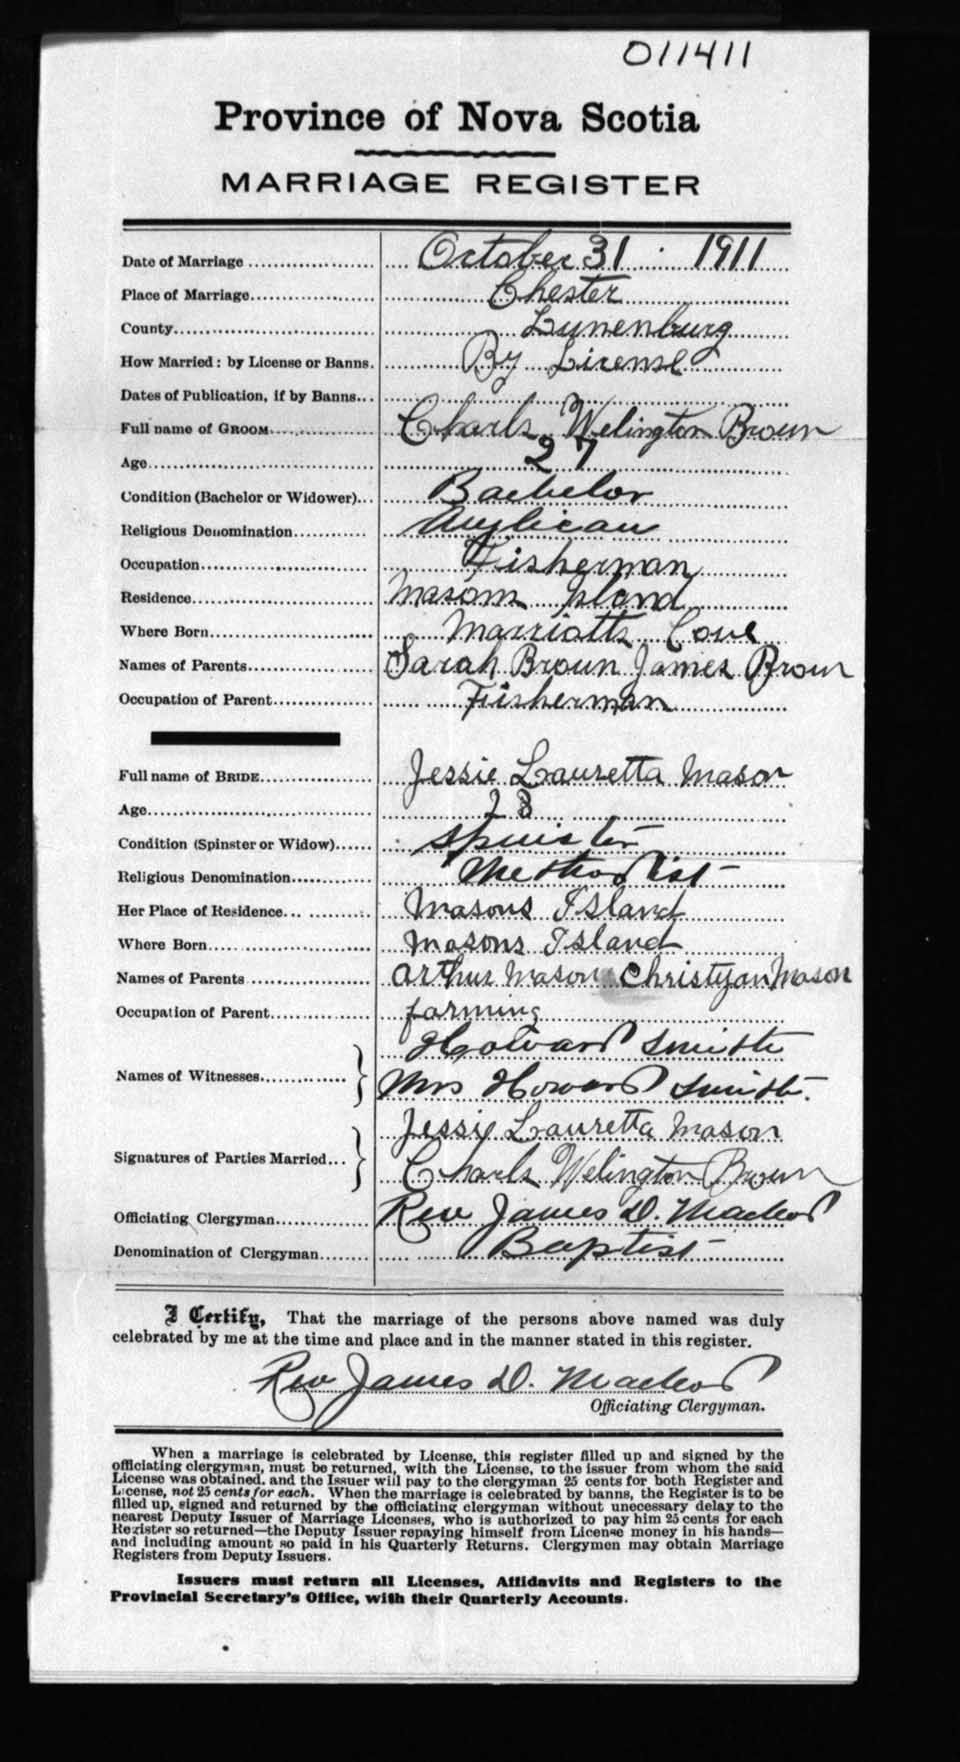 011411
Province of Nova Scotia
MARRIAGE REGISTER
Date of Marriage October 31 1911
Place of Marriage Chester
County Lunenburg
How Married: by License or Banns. By License
Dates of Publication, if by Banns
Full name of GROOM Charls Welington Broun
Age 27
Condition (Bachelor or Widower) Bachelor
Religious Denomination Anglican
Occupation Fisherman
Residence Masons Island
Where Born Marriotts Cove
Names of Parents Sarah Broun James Broun
Occupation of Parent Fisherman
Full name of BRIDE Jessie Lauretta Mason
Age 28
Condition (Spinster or Widow) Spinster
Religious Denomination Methodist
Her Place of Residence Masons Island
Where Born Masons Island
Names of Parents Arthur Mason Christyan Mason
Occupation of Parent farming
Names of Witnesses Howard Smith
Mrs Howard Smith.
Signatures of Parties Married Jessie Lauretta Mason
Charls Welington Broun
Officiating Clergyman Rev James D. MacLeod
Denomination of Clergyman Baptist
I Certify, That the marriage of the persons above named was duly
celebrated by me at the time and place and in the manner stated in this register.
Rev James D. MacLeod
Officiating Clergyman.
When a marriage is celebrated by License, this register filled up and signed by the
officiating clergyman, must be returned, with the License, to the issuer from whom the said
License was obtained, and the Issuer will pay to the clergyman 25 cents for both Register and
License, not 25 cents for each. When the marriage is celebrated by banns, the Register is to be
filled up, signed and returned by the officiating clergyman without unecessary delay to the
nearest Deputy Issuer of Marriage Licenses, who is authorized to pay him 25 cents for each
Register so returned—the Deputy Issuer repaying himself from License money in his hands—
and including amount so paid in his Quarterly Returns. Clergymen may obtain Marriage
Registers from Deputy Issuers.
Issuers must return all Licenses, Affidavits and Registers to the
Provincial Secretary's Office, with their Quarterly Accounts.